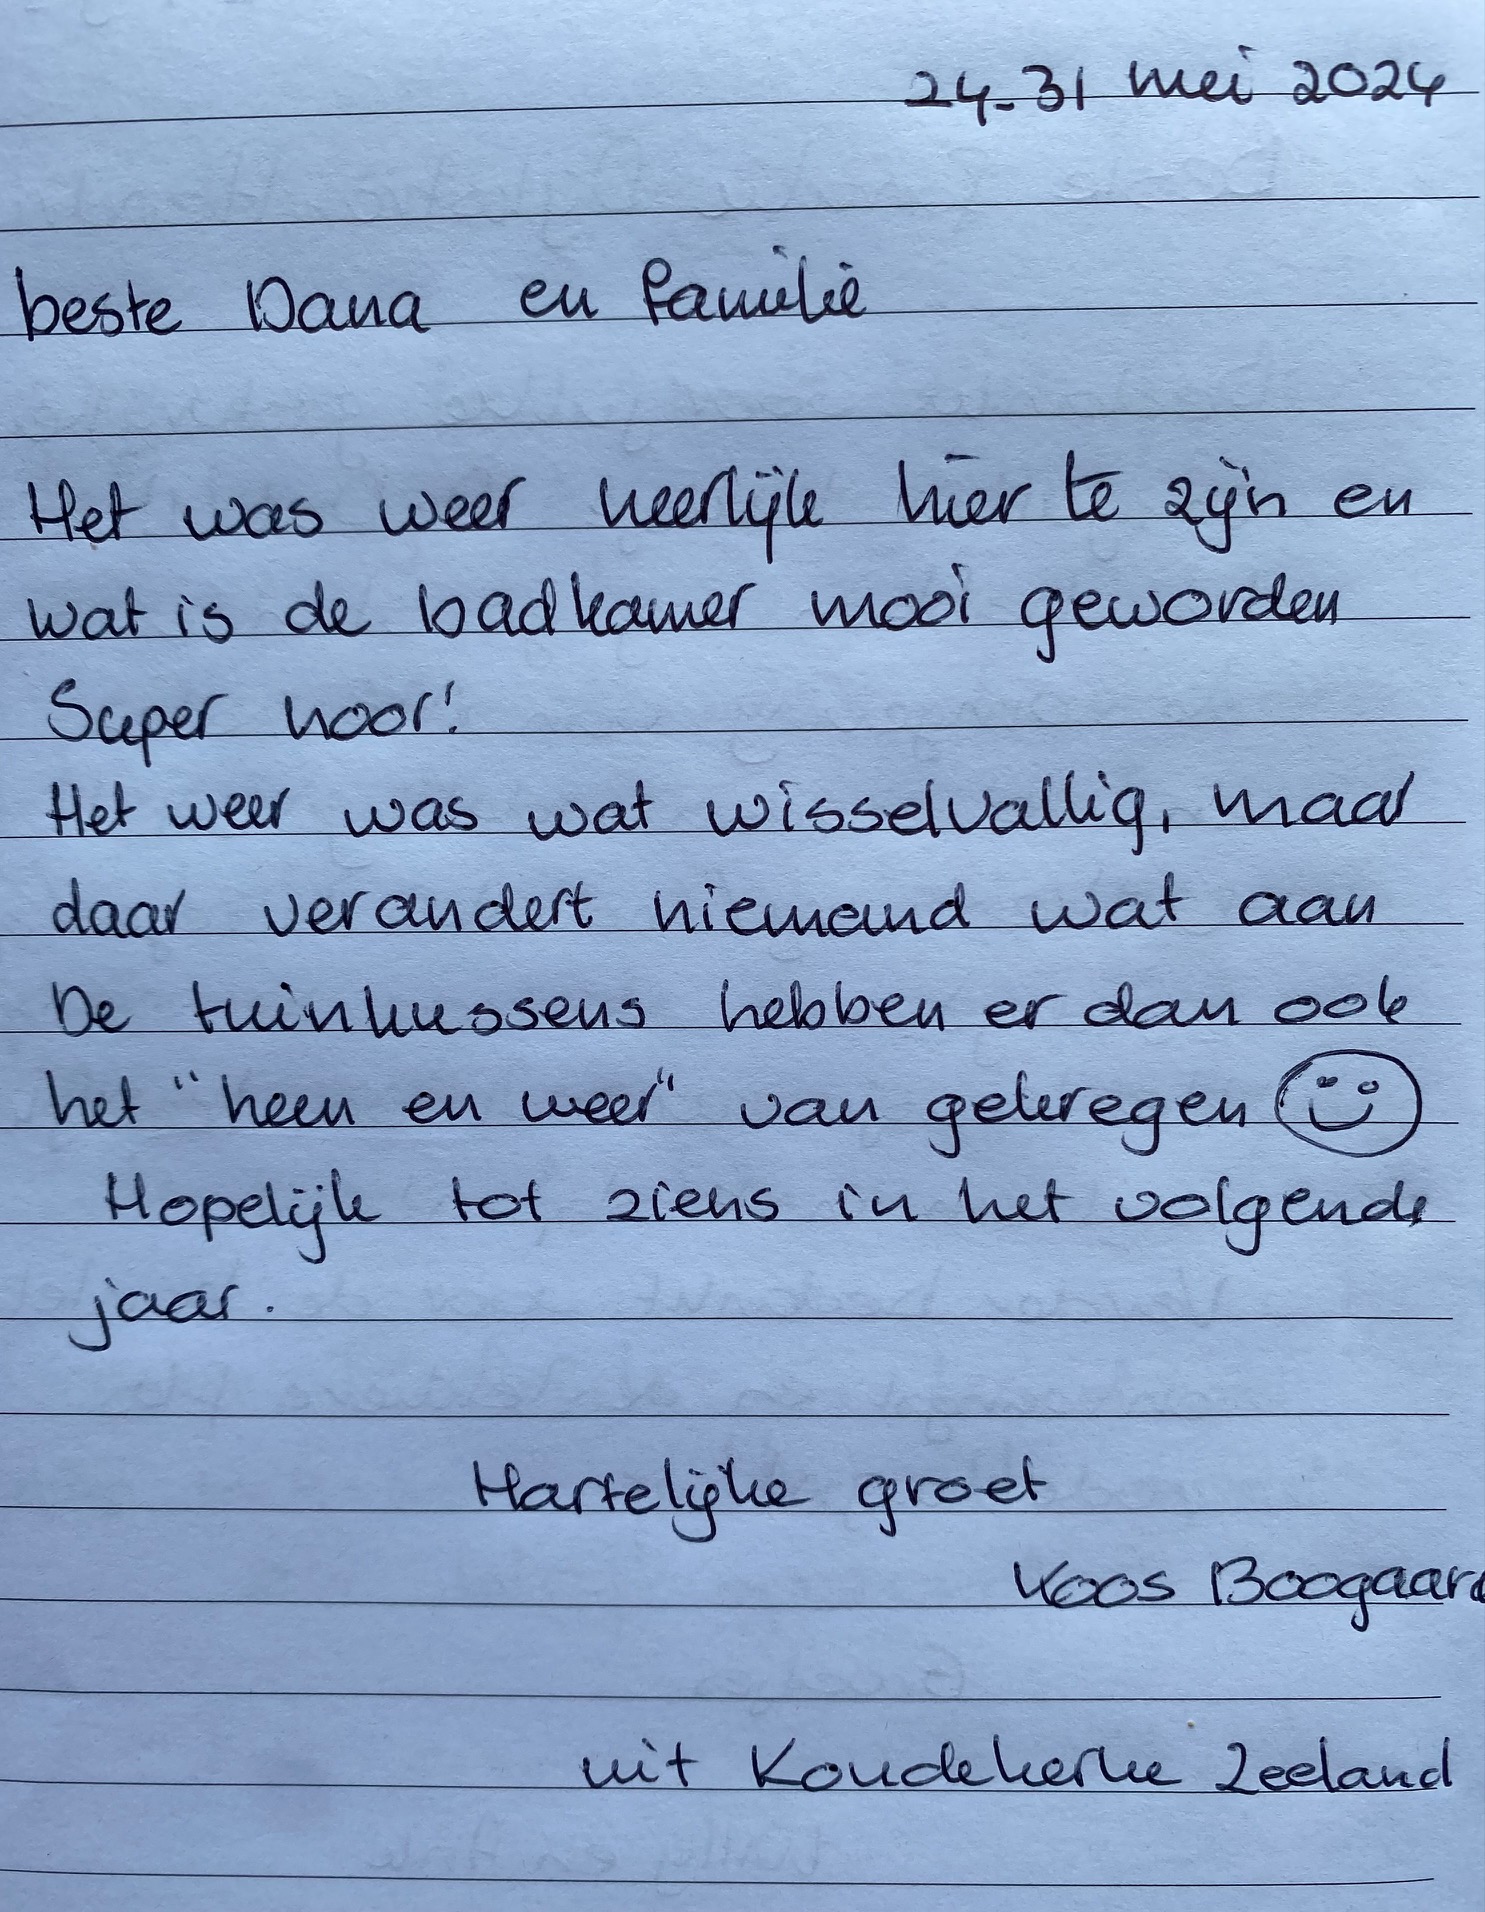 24-31 mei 2024
beste Dana en familie
Het was weer heerlijk hier te zijn en
wat is de badkamer mooi geworden
Super hoor!
Het weer was wat wisselvallig, maar
daar verandert niemand wat aan
De tuinkussens hebben er dan ook
het "heen en weer" van gekregen
Hopelijk tot ziens in het volgende
jaar.
Hartelijke groet
Koos Boogaard
uit Koudekerke Zeeland